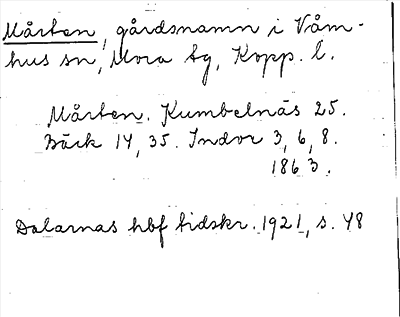 Mårten, gårdsnamn i Våm-
hus sn, Mora tg, Kopp. l.
Mårten. Kumbelnäs 25.
Bäck 14, 35. Indor 3, 6, 8.
1863.
Dalarnas hbf tidskr. 1921, s. 48